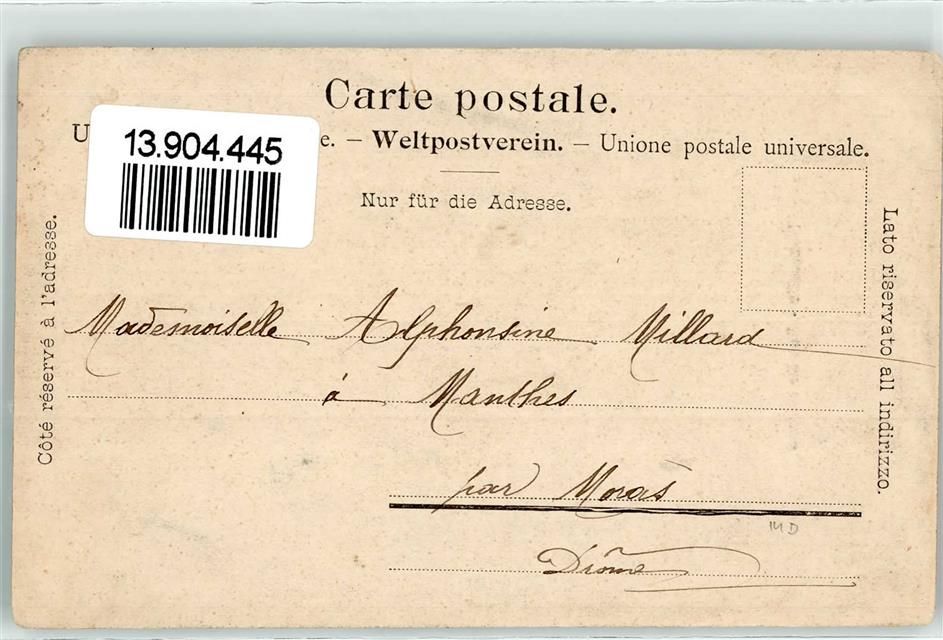 Carte postale.
U e. – Weltpostverein. – Unione postale universale.
13.904.445
Nur für die Adresse.
Côté réservé à l'adresse.
Lato riservato all indirizzo.
Mademoiselle Alphonsine Millard
à Manthes
par Moras
Drôme